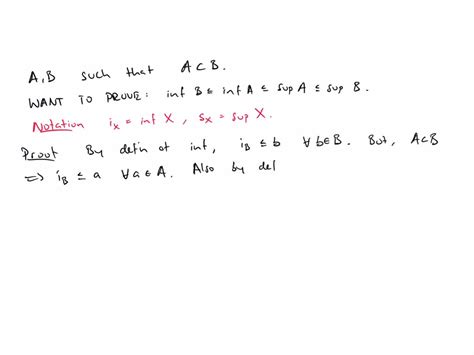 A, B such that A ⊂ B.
WANT TO PROVE: inf B ≤ inf A ≤ sup A ≤ sup B.
Notation i_X = inf X, s_X = sup X.
Proof By defn of inf, i_B ≤ b ∀ b ∈ B. But, A ⊂ B
⇒ i_B ≤ a ∀ a ∈ A. Also by def